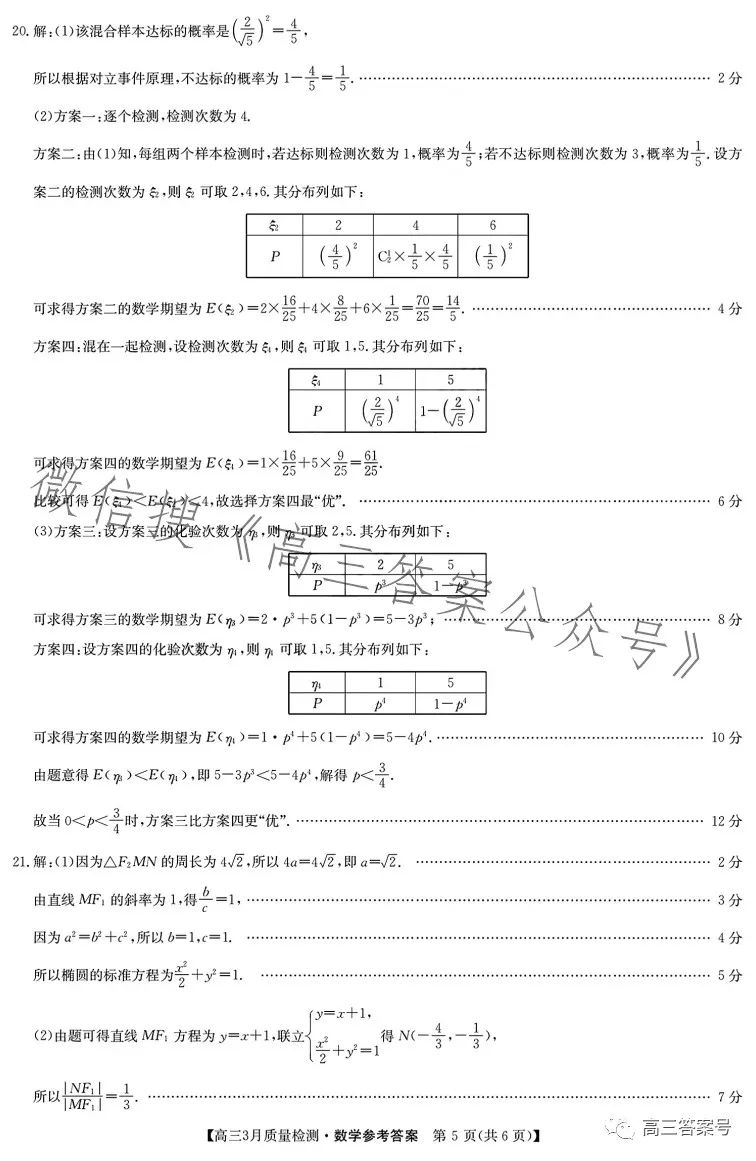 20. 解:(1)该混合样本达标的概率是(2/√5)²=4/5,
所以根据对立事件原理,不达标的概率为 1-4/5=1/5. …… 2 分
(2)方案一:逐个检测,检测次数为 4.
方案二:由(1)知,每组两个样本检测时,若达标则检测次数为 1,概率为4/5;若不达标则检测次数为 3,概率为1/5. 设方
案二的检测次数为 ξ₂,则 ξ₂ 可取 2,4,6. 其分布列如下:
ξ₂ 2 4 6
P (4/5)² C₂¹×1/5×4/5 (1/5)²
可求得方案二的数学期望为 E(ξ₂)=2×16/25+4×8/25+6×1/25=70/25=14/5. …… 4 分
方案四:混在一起检测,设检测次数为 ξ₄,则 ξ₄ 可取 1,5. 其分布列如下:
ξ₄ 1 5
P (2/√5)⁴ 1-(2/√5)⁴
可求得方案四的数学期望为 E(ξ₄)=1×16/25+5×9/25=61/25.
比较可得 E(ξ₄)<E(ξ₂)<4,故选择方案四最“优”. …… 6 分
(3)方案三:设方案三的化验次数为 η₃,则 η₃ 可取 2,5. 其分布列如下:
η₃ 2 5
P p³ 1-p³
可求得方案三的数学期望为 E(η₃)=2·p³+5(1-p³)=5-3p³; …… 8 分
方案四:设方案四的化验次数为 η₄,则 η₄ 可取 1,5. 其分布列如下:
η₄ 1 5
P p⁴ 1-p⁴
可求得方案四的数学期望为 E(η₄)=1·p⁴+5(1-p⁴)=5-4p⁴. …… 10 分
由题意得 E(η₃)<E(η₄),即 5-3p³<5-4p⁴,解得 p<3/4.
故当 0<p<3/4时,方案三比方案四更“优”. …… 12 分
21. 解:(1)因为△F₂MN 的周长为 4√2,所以 4a=4√2,即 a=√2. …… 2 分
由直线 MF₁ 的斜率为 1,得b/c=1, …… 3 分
因为 a²=b²+c²,所以 b=1,c=1. …… 4 分
所以椭圆的标准方程为x²/2+y²=1. …… 5 分
(2)由题可得直线 MF₁ 方程为 y=x+1,联立{y=x+1, x²/2+y²=1 得 N(-4/3,-1/3),
所以|NF₁|/|MF₁|=1/3. …… 7 分
【高三3月质量检测·数学参考答案 第 5 页(共 6 页)】
微信搜《高三答案公众号》
高三答案号